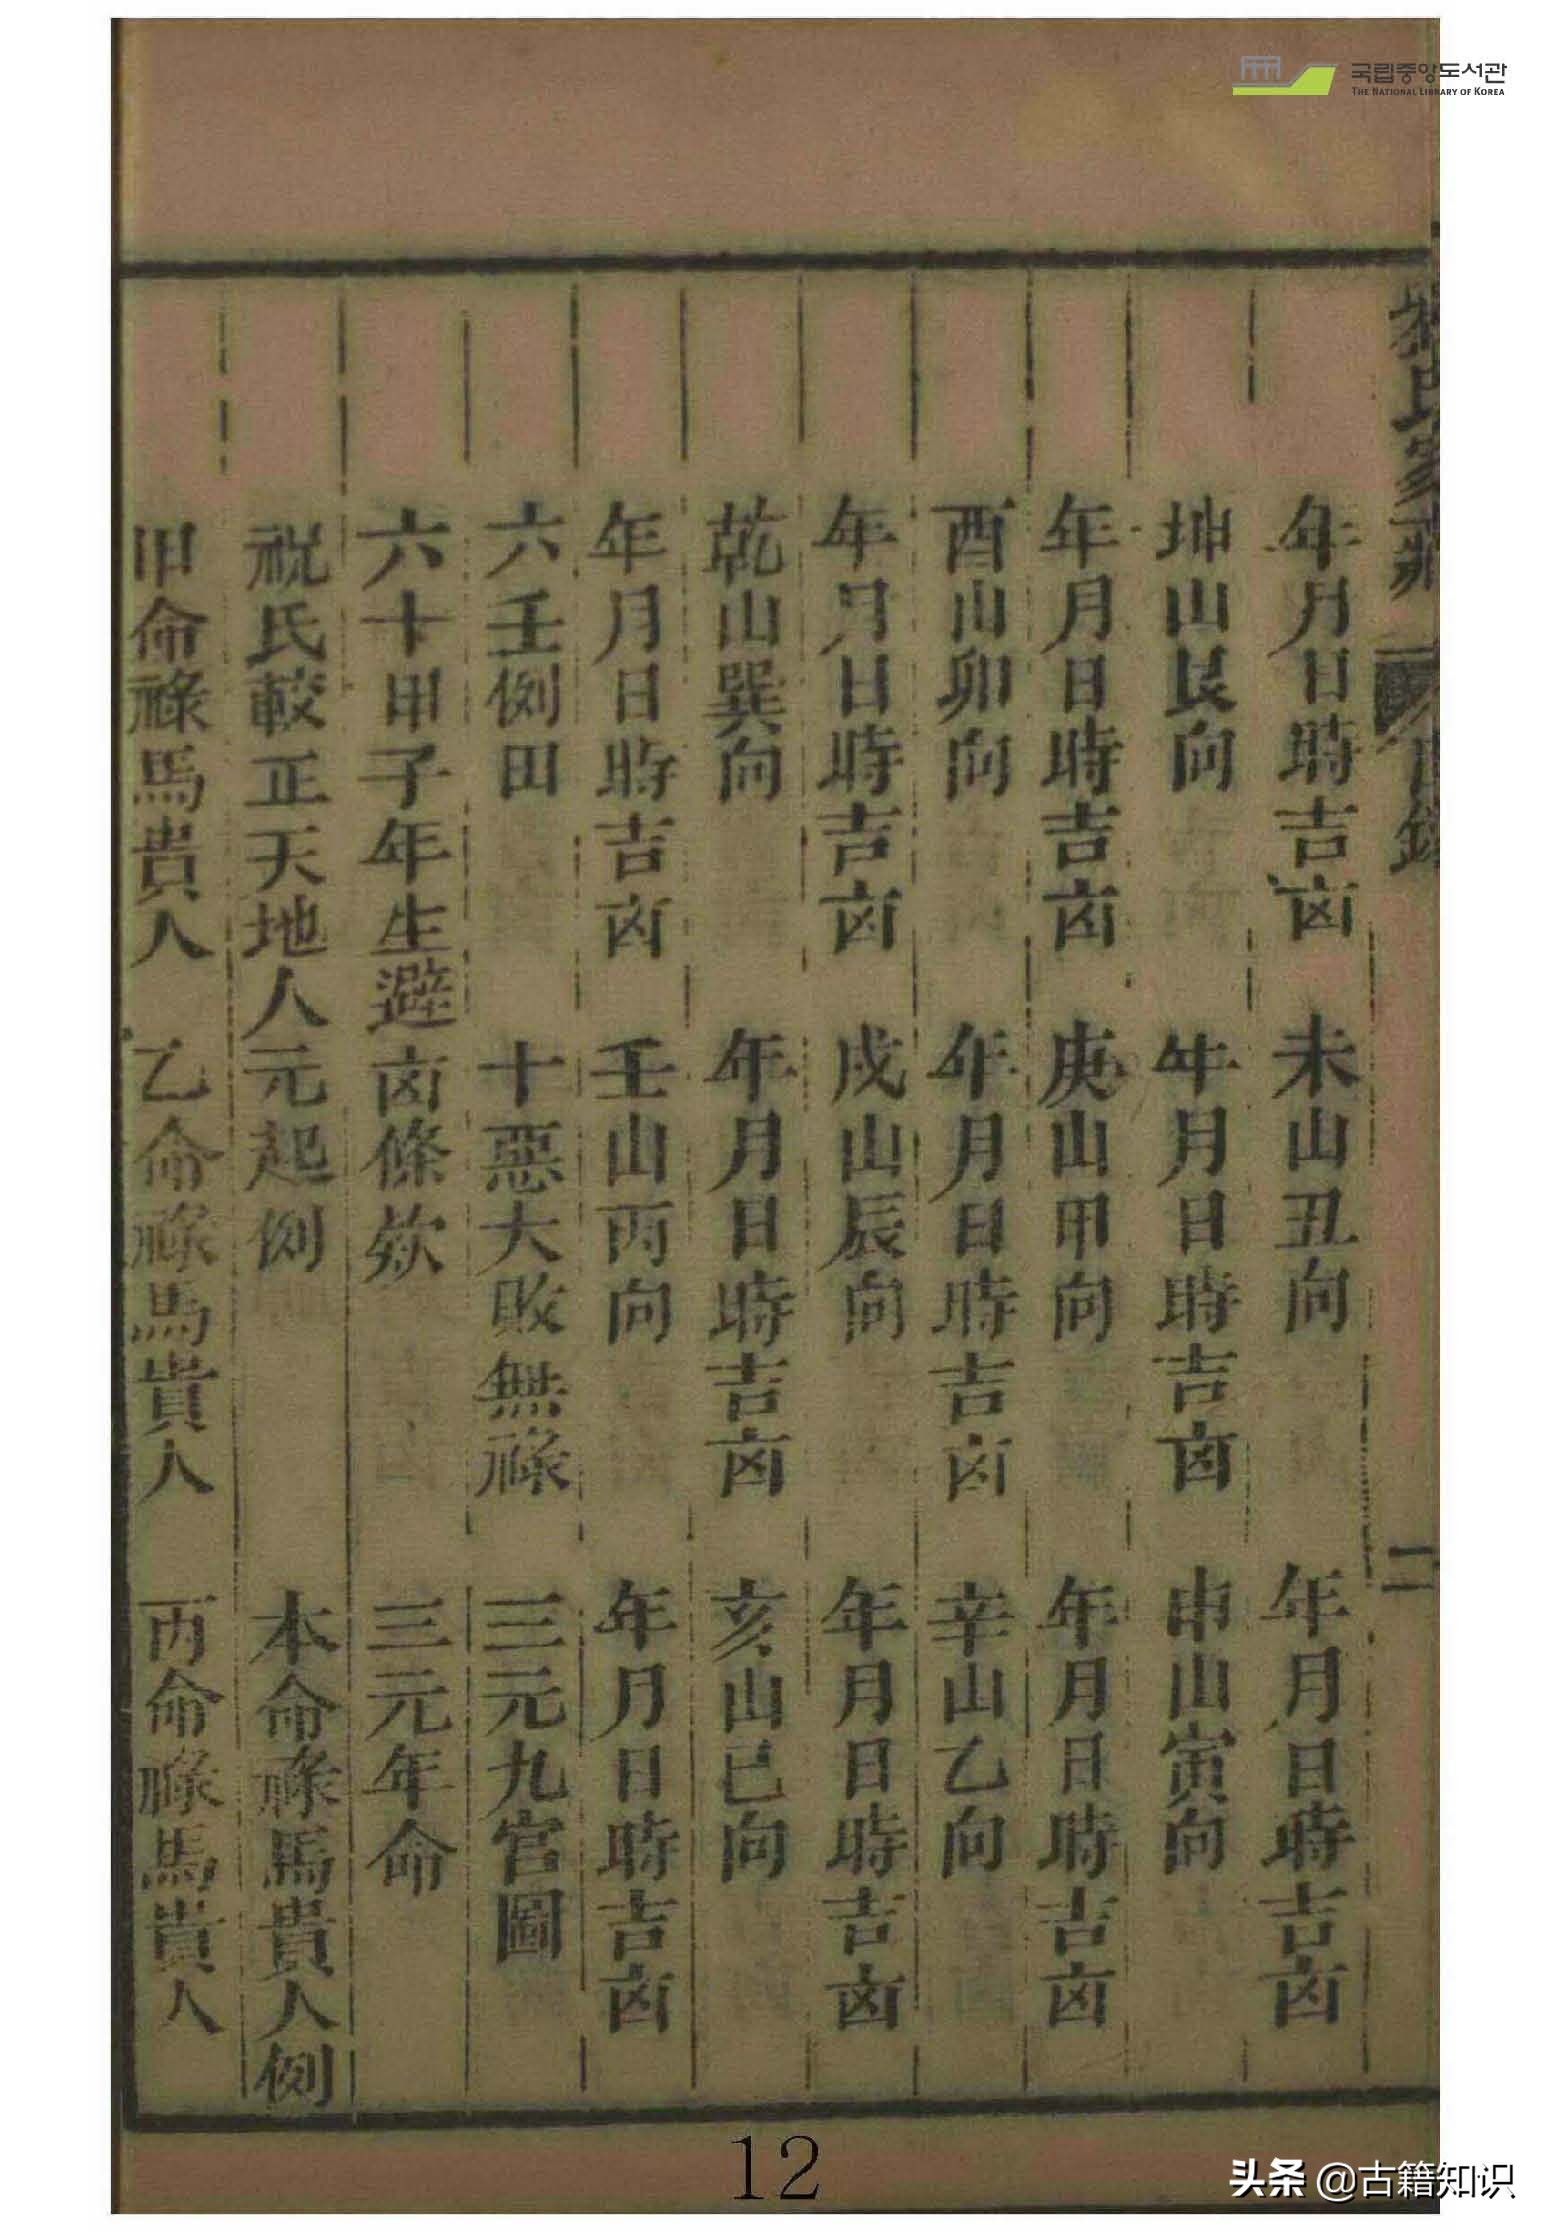 국립중앙도서관
THE NATIONAL LIBRARY OF KOREA
氏家藏
目錄
二
年月日時吉凶 未山丑向 年月日時吉凶
坤山艮向 年月日時吉凶 申山寅向
年月日時吉凶 庚山甲向 年月日時吉凶
酉山卯向 年月日時吉凶 辛山乙向
年月日時吉凶 戌山辰向 年月日時吉凶
乾山巽向 年月日時吉凶 亥山巳向
年月日時吉凶 壬山丙向 年月日時吉凶
六壬例田 十惡大敗無祿 三元九宮圖
六十甲子年生避凶條欵 三元年命
祝氏較正天地人元起例 本命祿馬貴人例
甲命祿馬貴人 乙命祿馬貴人 丙命祿馬貴人
12
头条 @古籍知识